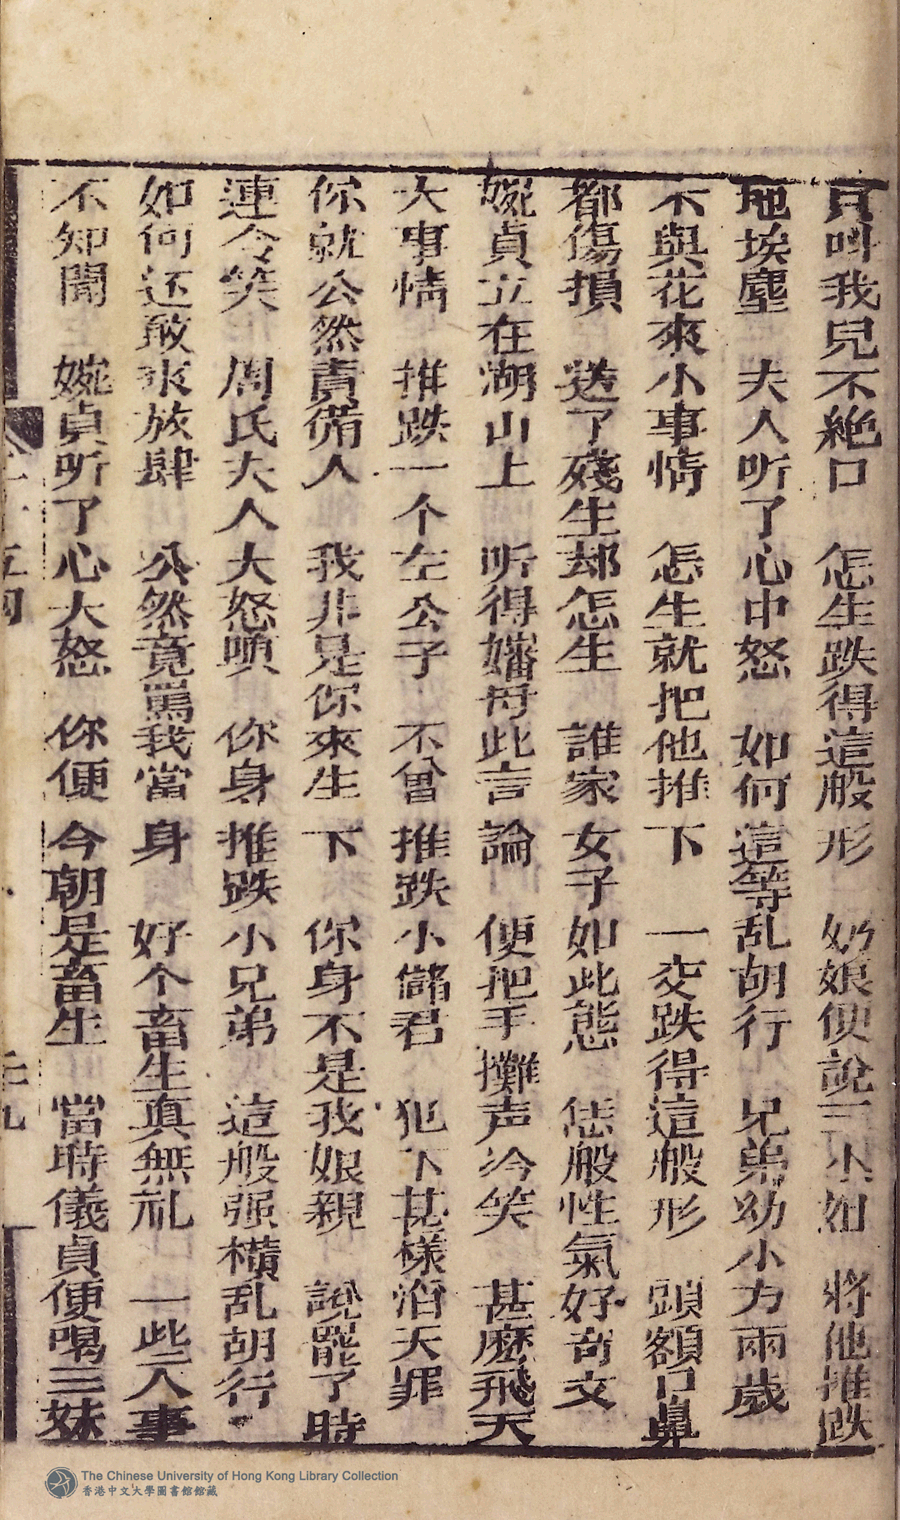 只叫我兒不絶口　怎生跌得這般形　奶娘便說三小姐　將他推跌
地埃塵　夫人听了心中怒　如何這等乱胡行　兄弟幼小方兩歲
不與花來小事情　怎生就把他推下　一交跌得這般形　頭額口鼻
都傷損　送了殘生却怎生　誰家女子如此態　恁般性氣好奇文
婉貞立在湖山上　听得嬸母此言論　便把手攤声冷笑　甚麽飛天
大事情　推跌一个左公子　不曾推跌小儲君　犯下甚樣滔天罪
你就公然責備人　我非是你來生下　你身不是我娘親　說罷了時
連令笑　周氏夫人大怒嗔　你身推跌小兄弟　這般强橫乱胡行
如何还敢來放肆　公然竟罵我當身　好个畜生真無礼　一些人事
不知聞　婉貞听了心大怒　你便今朝是畜生　當時儀貞便喝三妹
The Chinese University of Hong Kong Library Collection
香港中文大學圖書館館藏